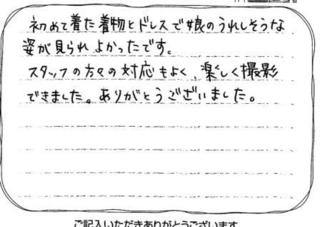 初めて着た着物とドレスで娘のうれしそうな
姿が見られよかったです。
スタッフの方々の対応もよく、楽しく撮影
できました。ありがとうございました。
ご記入いただきありがとうございます